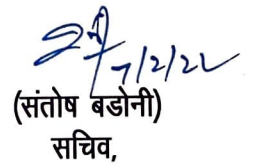 7/2/22
(संतोष बडोनी)
सचिव,